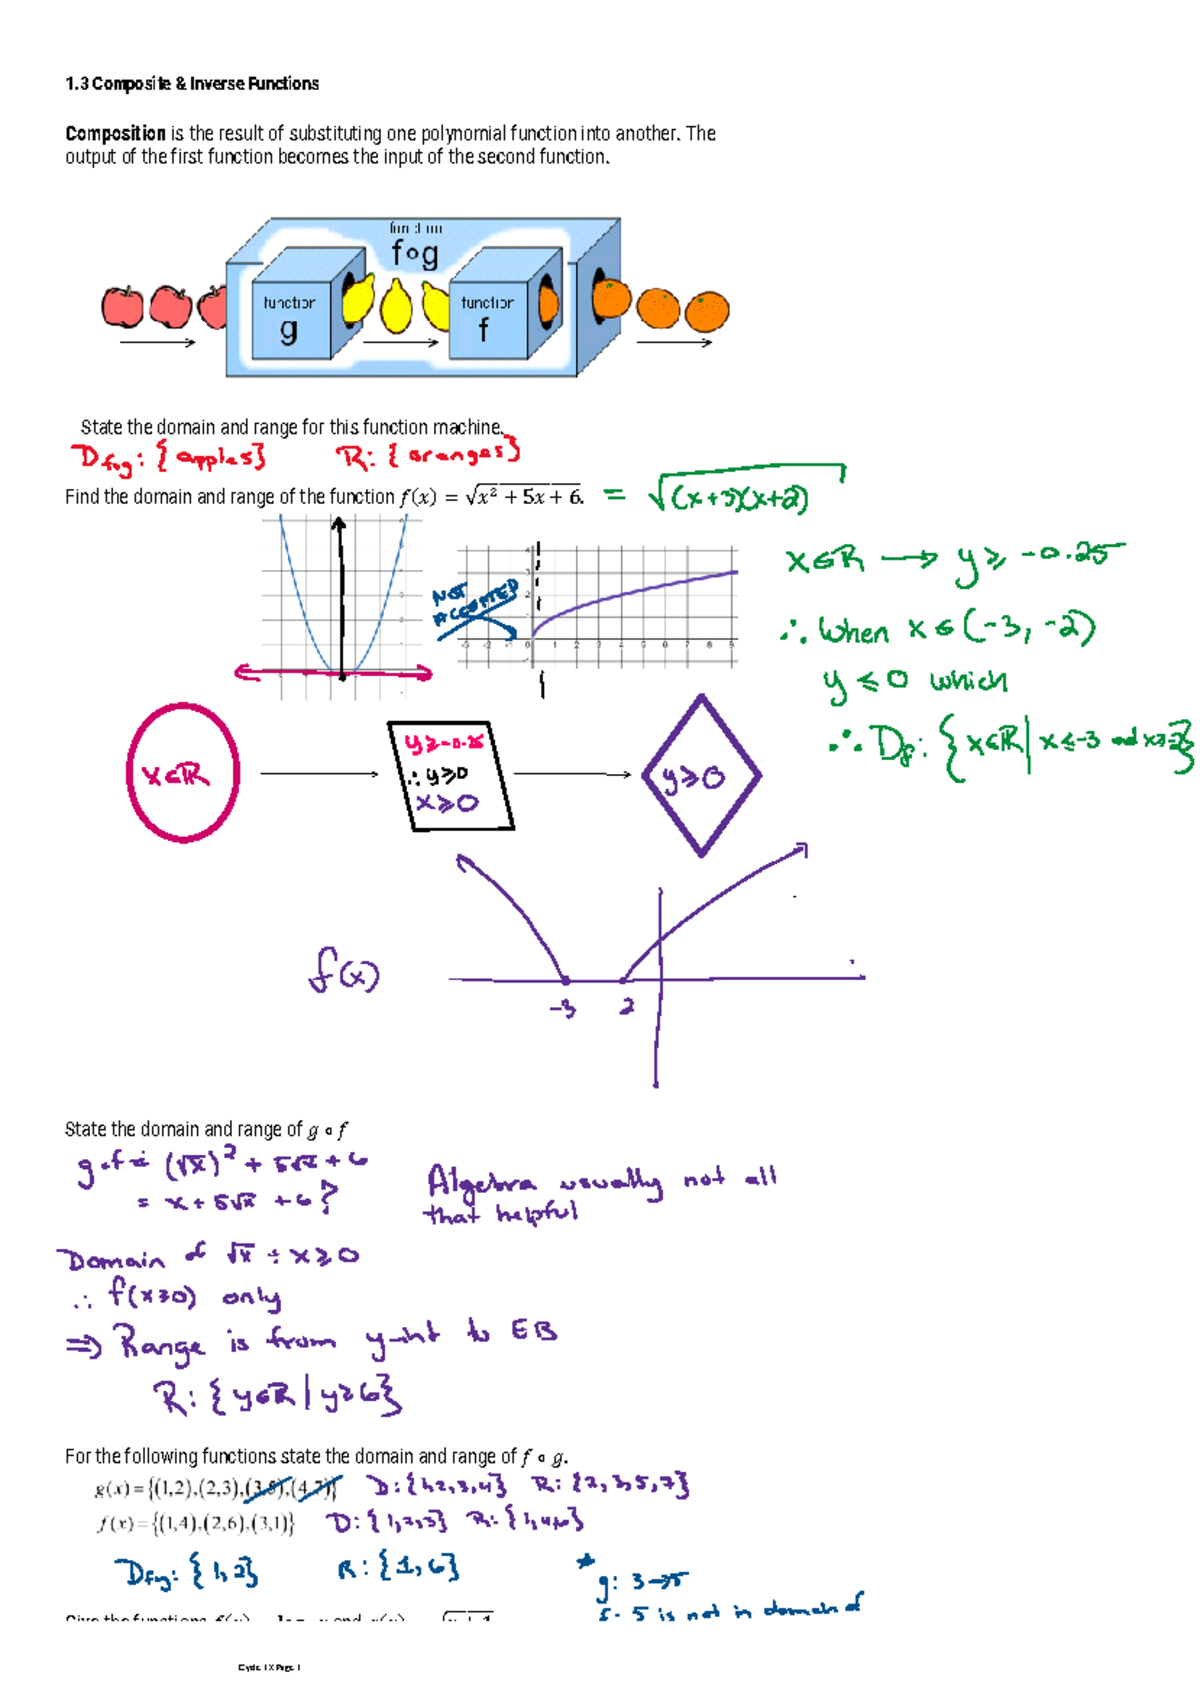 1.3 Composite & Inverse Functions
Composition is the result of substituting one polynomial function into another. The
output of the first function becomes the input of the second function.
function
f∘g
function
g
function
f
State the domain and range for this function machine.
D_fog : {apples} R: {oranges}
Find the domain and range of the function f(x) = √(x² + 5x + 6). = √(x+3)(x+2)
NOT
ACCEPTED
x∈R → y ≥ -0.25
∴ When x ∈ (-3, -2)
y ≤ 0 which
∴ D_f : {x∈R | x ≤ -3 and x ≥ -2}
x∈R
y ≥ -0.25
∴ y ≥ 0
x ≥ 0
y ≥ 0
f(x)
-3 2
State the domain and range of g ∘ f
g∘f = (√x)² + 5√x + 6
= x + 5√x + 6 ?
Algebra usually not all
that helpful
Domain of √x ÷ x ≥ 0
∴ f(x≥0) only
⇒ Range is from y-int to EB
R: {y∈R | y ≥ 6}
For the following functions state the domain and range of f ∘ g.
g(x) = {(1,2),(2,3),(3,5),(4,7)} D: {1,2,3,4} R: {2,3,5,7}
f(x) = {(1,4),(2,6),(3,1)} D: {1,2,3} R: {1,4,6}
D_fog : {1,2} R: {1,6}
* g: 3→5
f: 5 is not in domain of